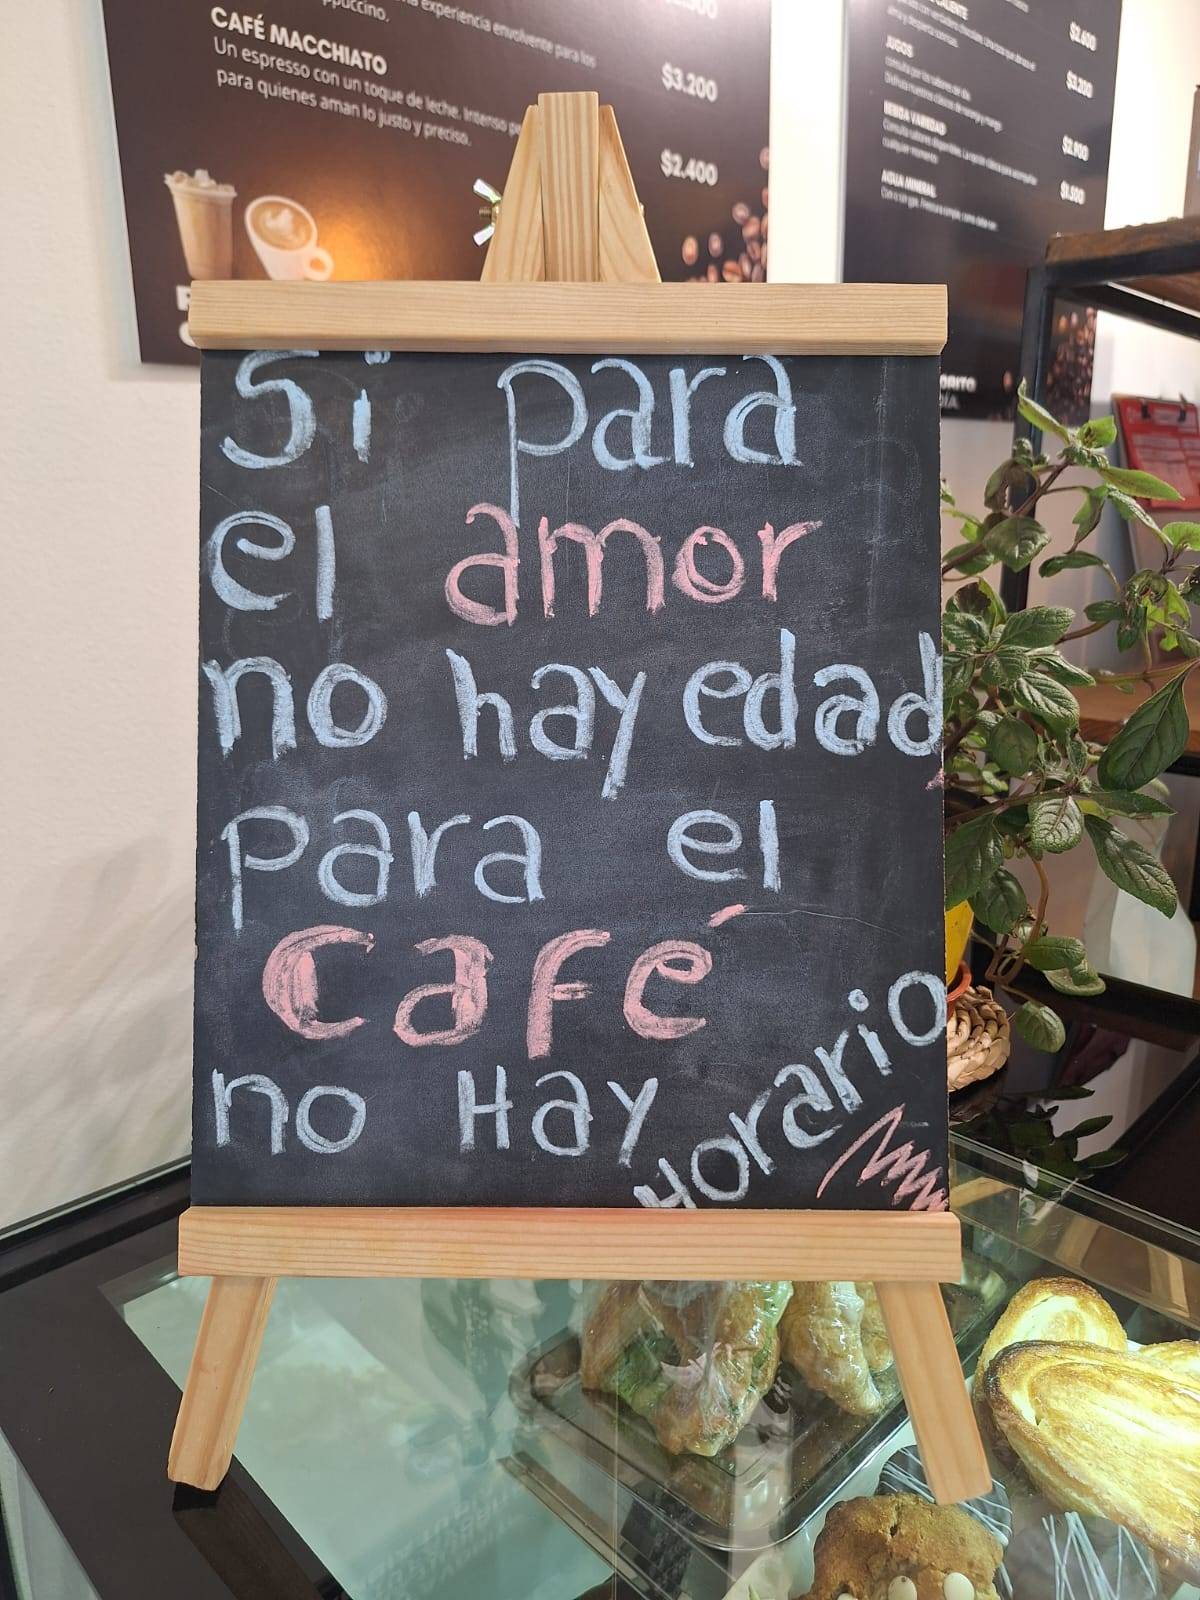 ppuccino.
experiencia envolvente para los
CAFÉ MACCHIATO
$3.200
Un espresso con un toque de leche. Intenso
para quienes aman lo justo y preciso.
$2.400
CALIENTE
$2.600
JUGOS
$3.200
BEBIDA VARIEDAD
$2.900
AGUA MINERAL
$1.500
Si para
el amor
no hay edad,
para el
café
no Hay Horario